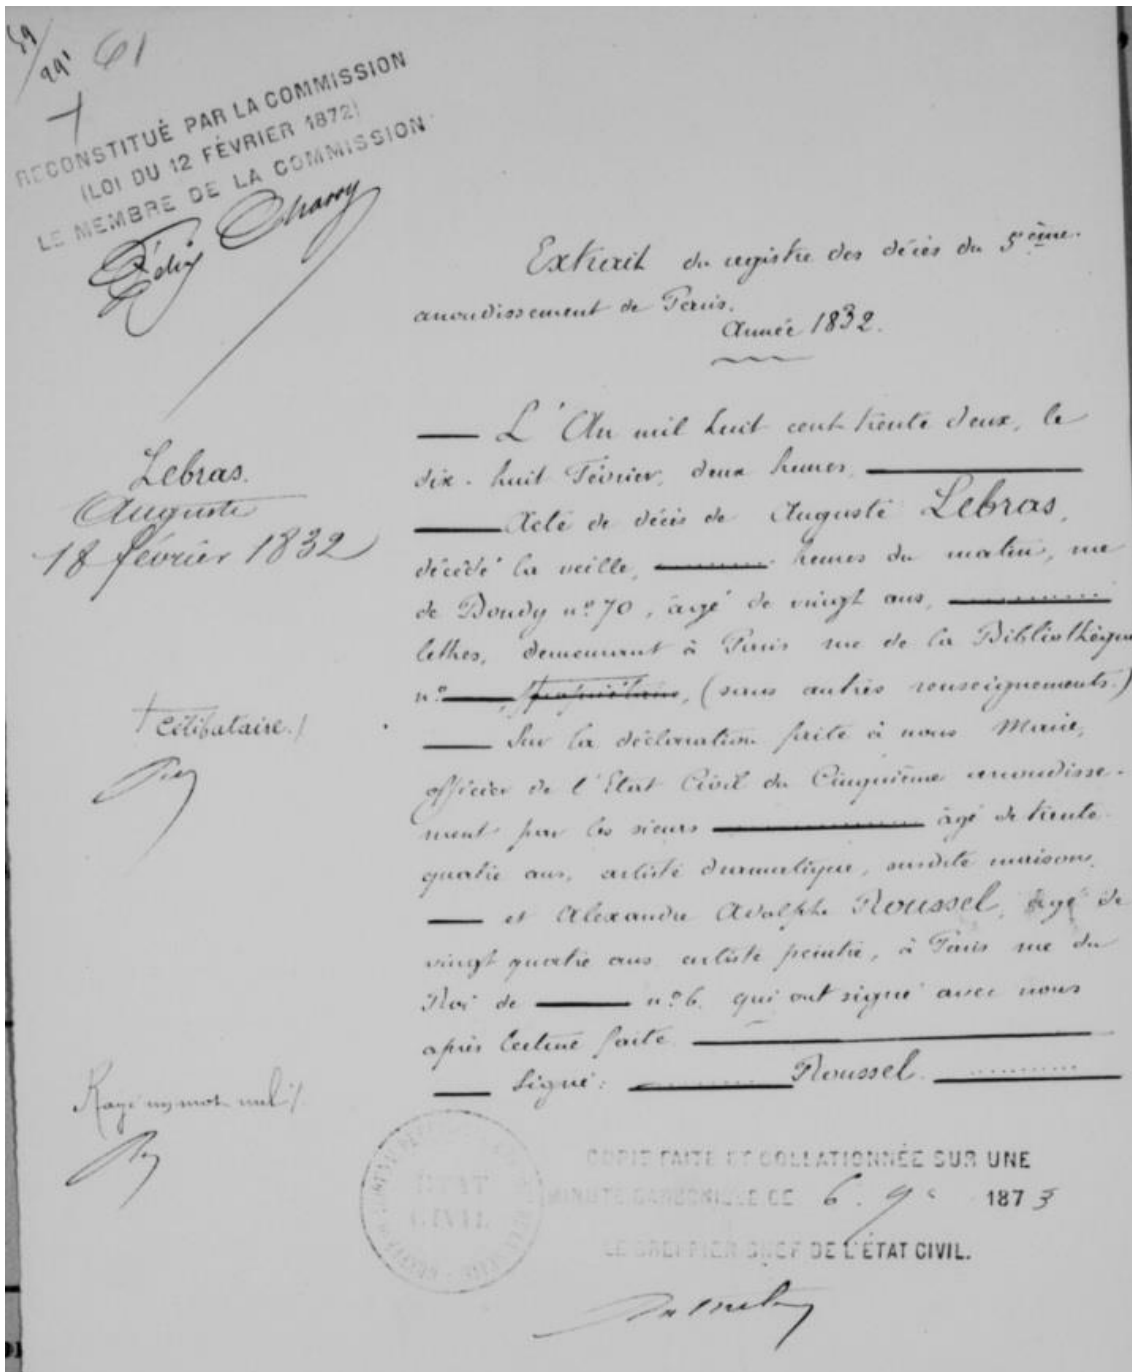 59
291
61
RECONSTITUÉ PAR LA COMMISSION
(LOI DU 12 FÉVRIER 1872)
LE MEMBRE DE LA COMMISSION
Félix Charoy
Extrait du registre des décès du 5ème
arrondissement de Paris.
Année 1832.
L'An mil huit cent trente deux, le
dix-huit Février, deux heures,
Acte de décès de Auguste Lebras,
décédé la veille, heures du matin, rue
de Bondy n° 70, âgé de vingt ans,
lettres, demeurant à Paris rue de la Bibliothèque
n° , propriétaire, (sans autres renseignements.)
Sur la déclaration faite à nous Maire,
officier de l'Etat Civil du Cinquième arrondisse-
ment par les sieurs âgé de trente
quatre ans, artiste dramatique, susdite maison,
et Alexandre Adolphe Roussel, âgé de
vingt quatre ans artiste peintre, à Paris rue du
Roi de n° 6. qui ont signé avec nous
après lecture faite
Signé: Roussel.
Lebras.
Auguste
18 février 1832
célibataire./
Rayé un mot nul/.
ETAT
CIVIL
COPIE FAITE ET COLLATIONNÉE SUR UNE
MINUTE CARBONISÉE CE 6. 9e 1873
LE GREFFIER CHEF DE L'ÉTAT CIVIL.